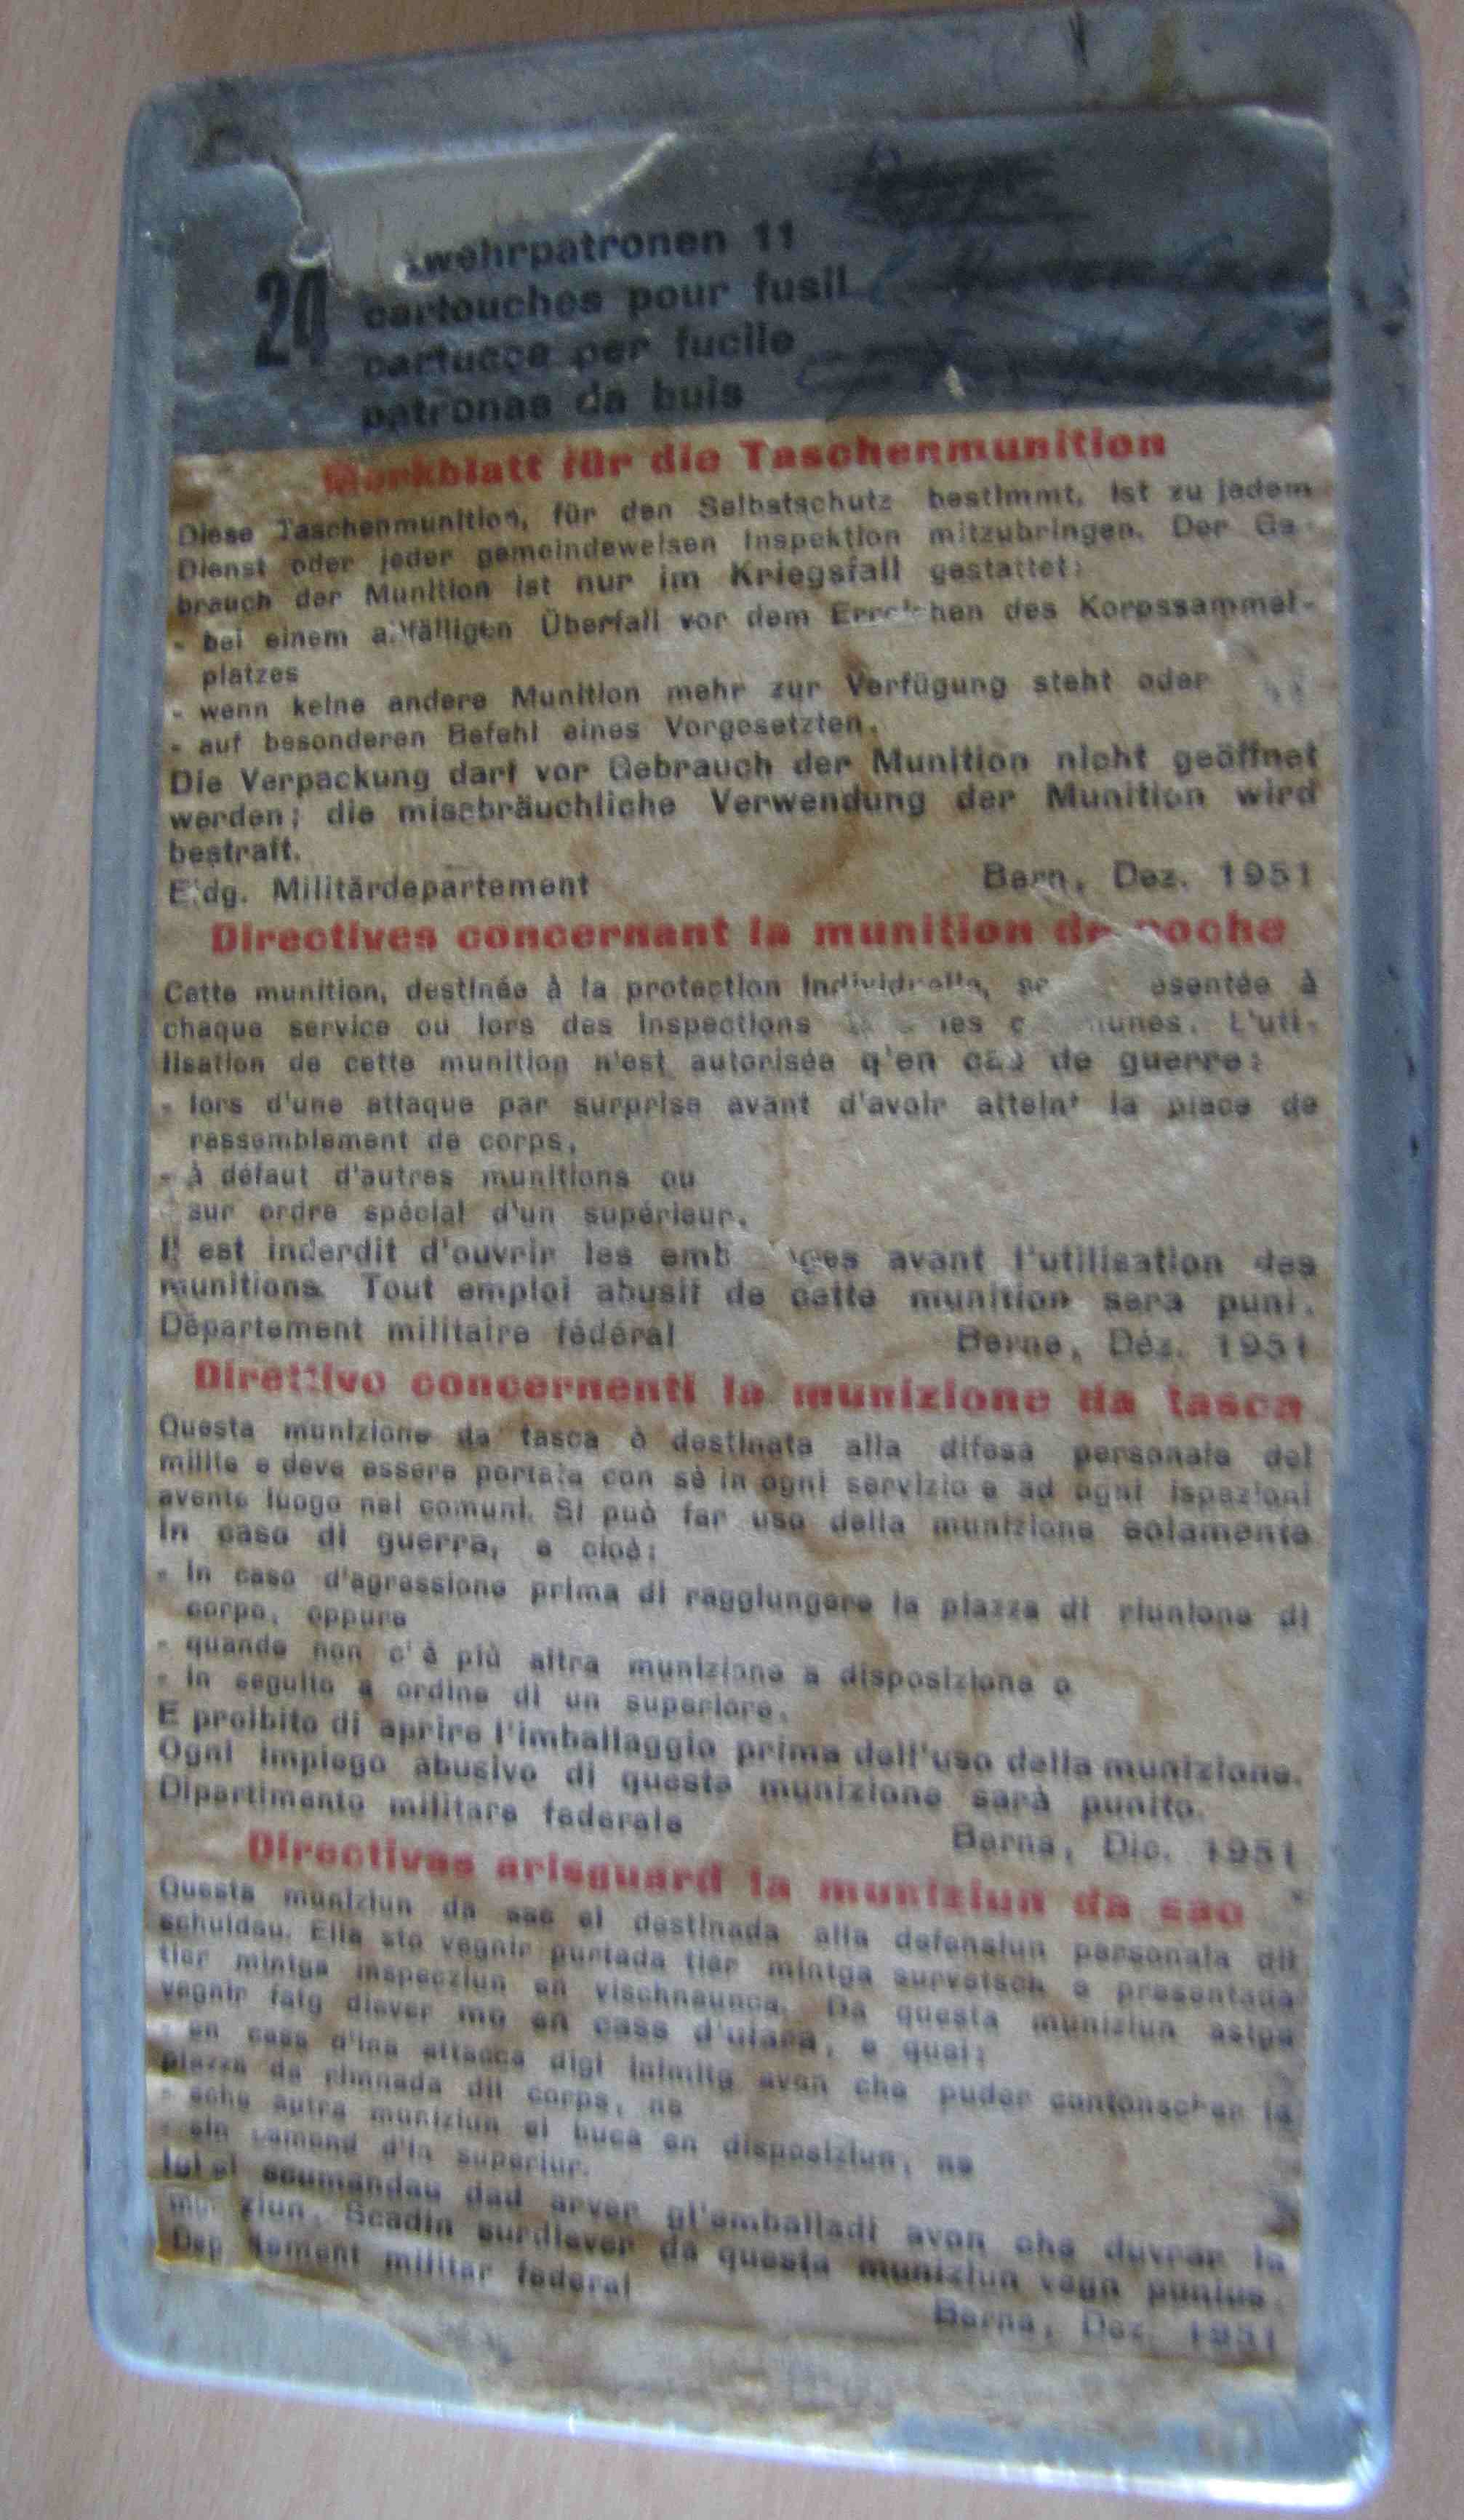 24
wehrpatronen 11
cartouches pour fusil
cartucce per fucile
patronas da buis
Merkblatt für die Taschenmunition
Diese Taschenmunition, für den Selbstschutz bestimmt, ist zu jedem
Dienst oder jeder gemeindeweisen Inspektion mitzubringen. Der Ge-
brauch der Munition ist nur im Kriegsfall gestattet:
- bei einem allfälligen Überfall vor dem Erreichen des Korpssammel-
platzes
- wenn keine andere Munition mehr zur Verfügung steht oder
- auf besonderen Befehl eines Vorgesetzten.
Die Verpackung darf vor Gebrauch der Munition nicht geöffnet
werden; die missbräuchliche Verwendung der Munition wird
bestraft.
Eidg. Militärdepartement Bern, Dez. 1951
Directives concernant la munition de poche
Cette munition, destinée à la protection individuelle, esentée à
chaque service ou lors des inspections les unes. L'uti-
lisation de cette munition n'est autorisée q'en cas de guerre:
- lors d'une attaque par surprise avant d'avoir atteint la place de
rassemblement de corps,
- à défaut d'autres munitions ou
sur ordre spécial d'un supérieur.
Il est inderdit d'ouvrir les emb ages avant l'utilisation des
munitions. Tout emploi abusif de cette munition sera puni.
Département militaire fédéral Berne, Déz. 1951
Direttive concernenti la munizione da tasca
Questa munizione da tasca è destinata alla difesa personale del
milite e deve essere portata con sè in ogni servizio e ad ogni ispezioni
avente luogo nei comuni. Si può far uso della munizione solamente
in caso di guerra, e cioè:
- in caso d'agressione prima di raggiungere la piazza di riunione di
corpo, oppure
- quando non c'è più altra munizione a disposizione o
- in seguito a ordine di un superiore.
E proibito di aprire l'imballaggio prima dell'uso della munizione.
Ogni impiego abusivo di questa munizione sarà punito.
Dipartimento militare federale Berna, Dic. 1951
Directivas arisguard la muniziun da sac
Questa muniziun da sac ei destinada alla defensiun persanala dil
schuldau. Ella sto vegnir purtada tier mintga survetsch e presentada
tier mintga inspecziun en vischnaunca. Da questa muniziun astga
vegnir fatg diever mo en cass d'uiara, e quei:
- en cass d'ina attacca digl inimitg avon che puder contonscher la
piazza da rimnada dil corps, ne
- sche autra muniziun ei buca en disposiziun, ne
- sin camond d'in superiur.
Igl ei scumandau dad arver gl'emballadi avon che duvrar la
muniziun. Scadin surdiever da questa muniziun vegn punius.
Departement militar federal Berna, Dez. 1951